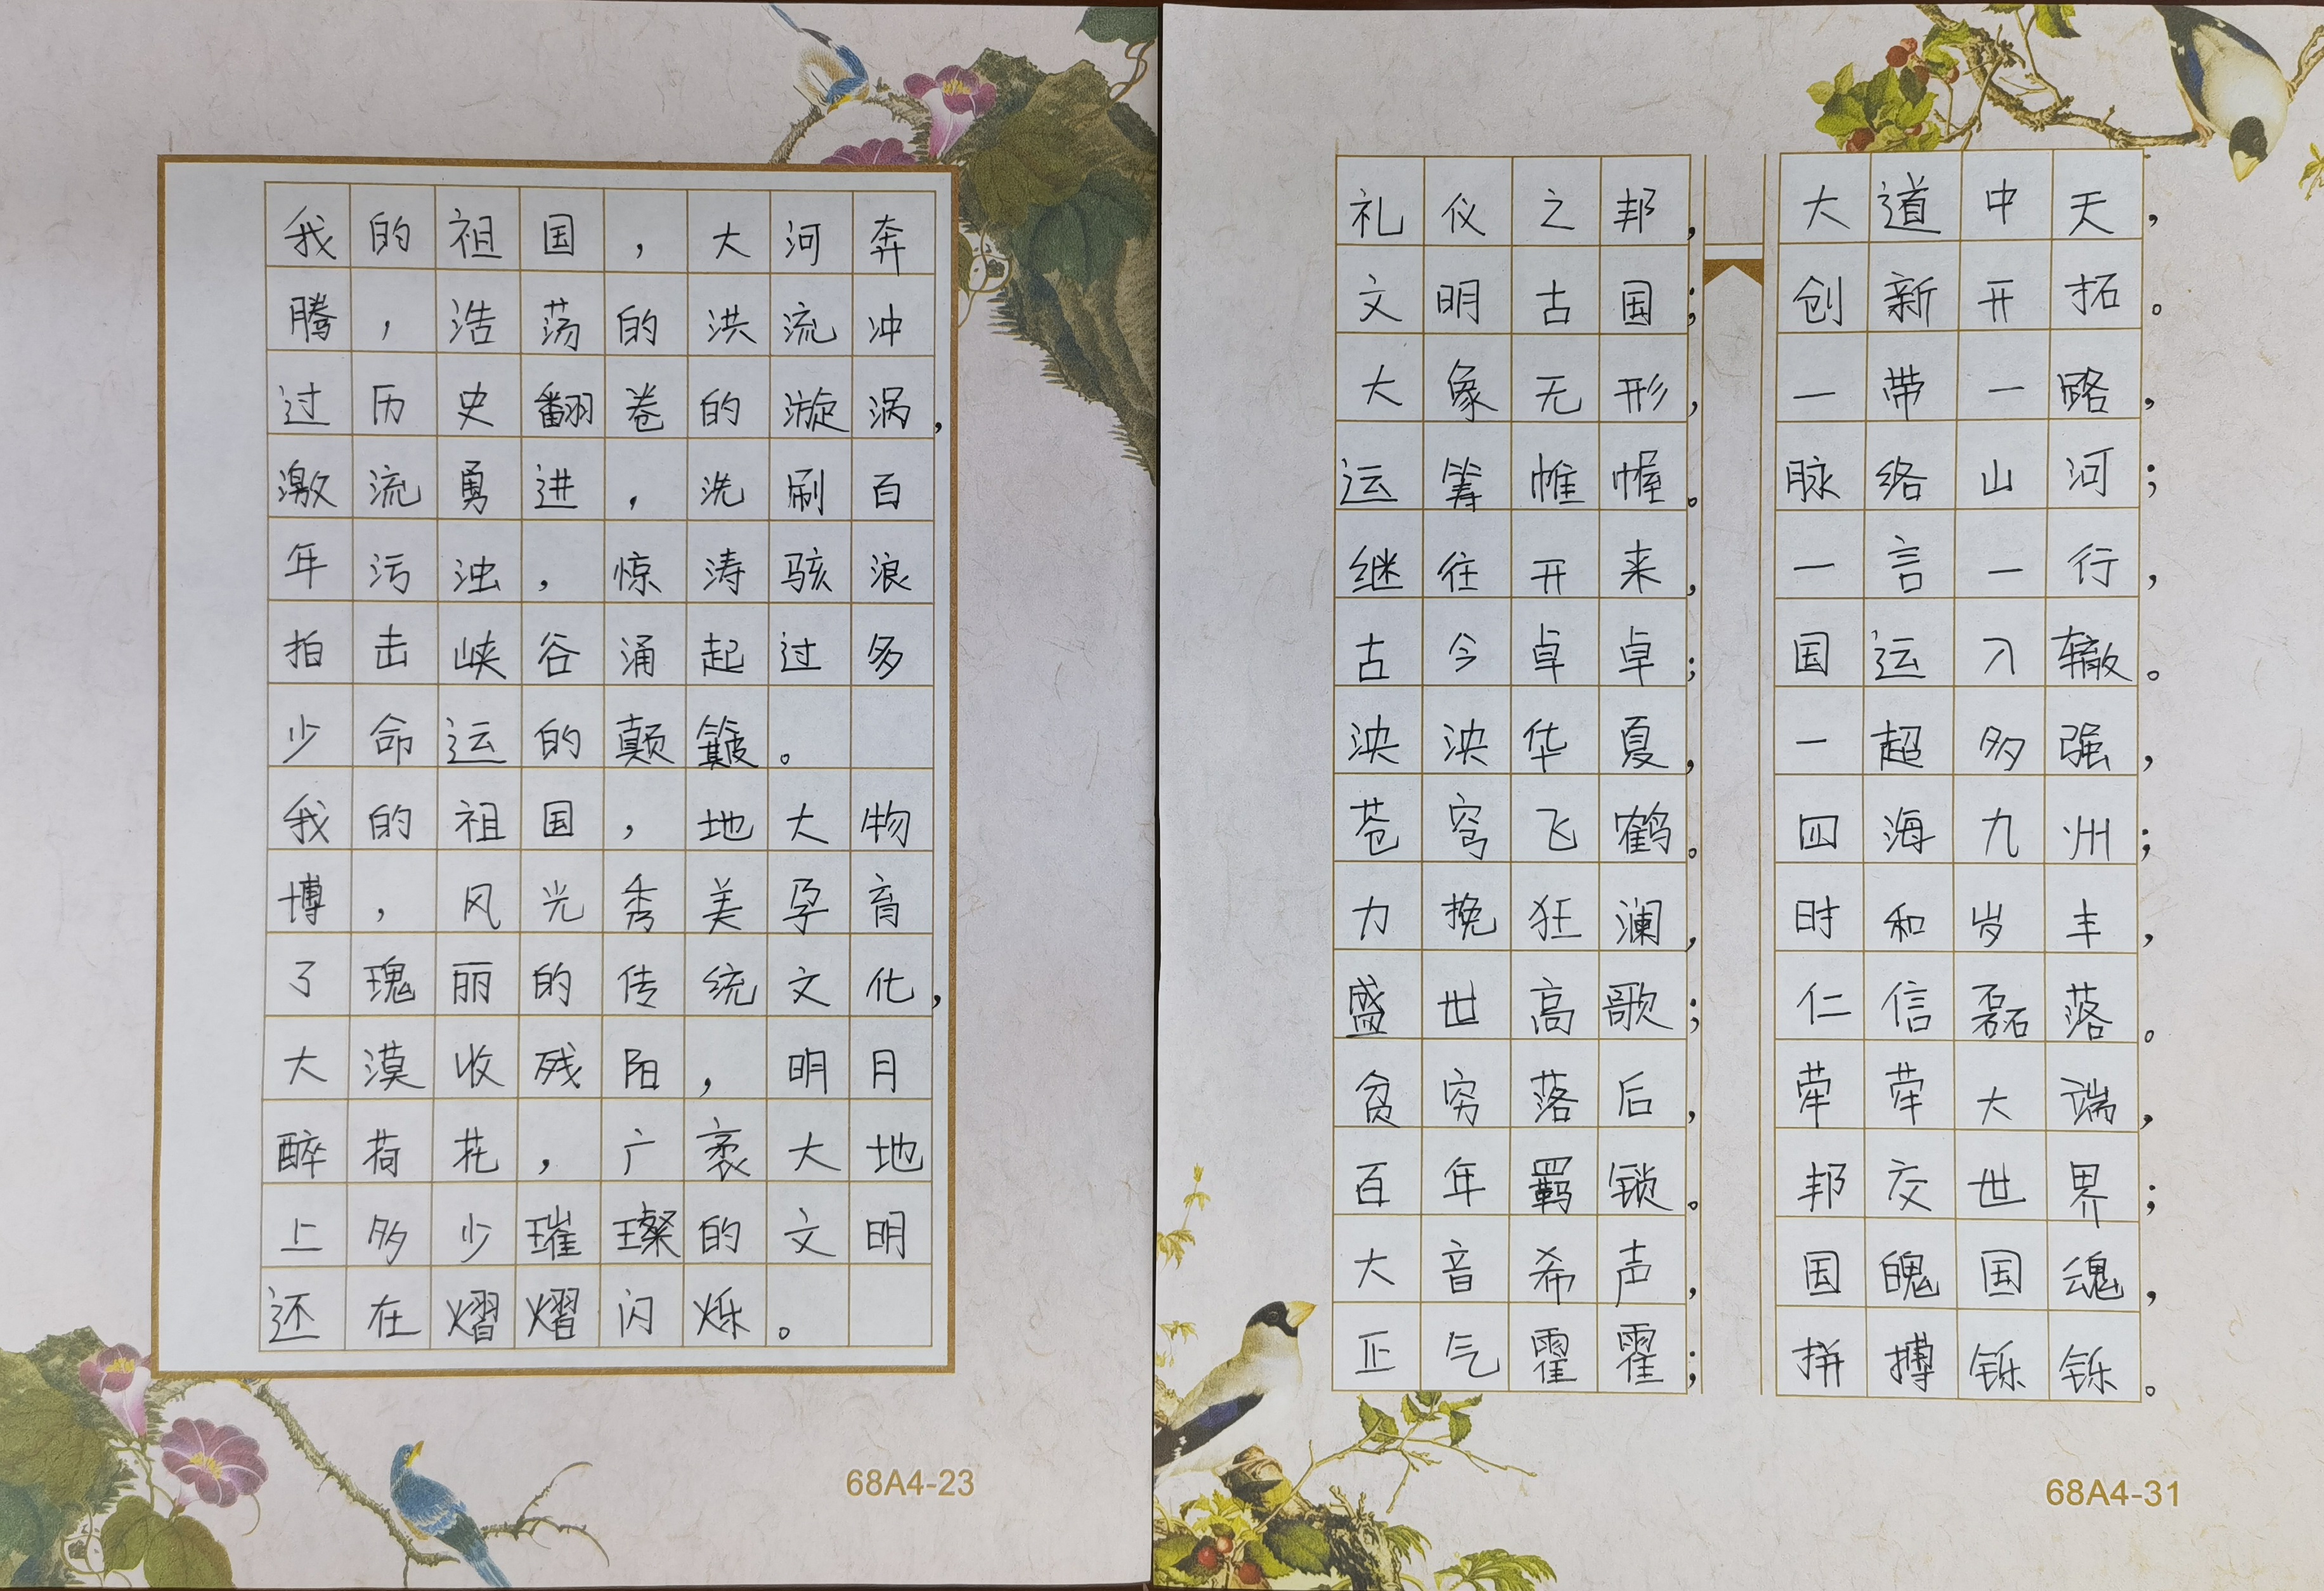 我的祖国，大河奔
腾，浩荡的洪流冲
过历史翻卷的漩涡，
激流勇进，洗刷百
年污浊，惊涛骇浪
拍击峡谷涌起过多
少命运的颠簸。
我的祖国，地大物
博，风光秀美孕育
了瑰丽的传统文化，
大漠收残阳，明月
醉荷花，广袤大地
上多少璀璨的文明
还在熠熠闪烁。
68A4-23
礼仪之邦，
文明古国；
大象无形，
运筹帷幄。
继往开来，
古今卓卓；
泱泱华夏，
苍穹飞鹤。
力挽狂澜，
盛世高歌；
贫穷落后，
百年羁锁。
大音希声，
正气霍霍；
大道中天，
创新开拓。
一带一路，
脉络山河；
一言一行，
国运入辙。
一超多强，
四海九州；
时和岁丰，
仁信磊落。
荦荦大端，
邦交世界；
国魄国魂，
拼搏铄铄。
68A4-31